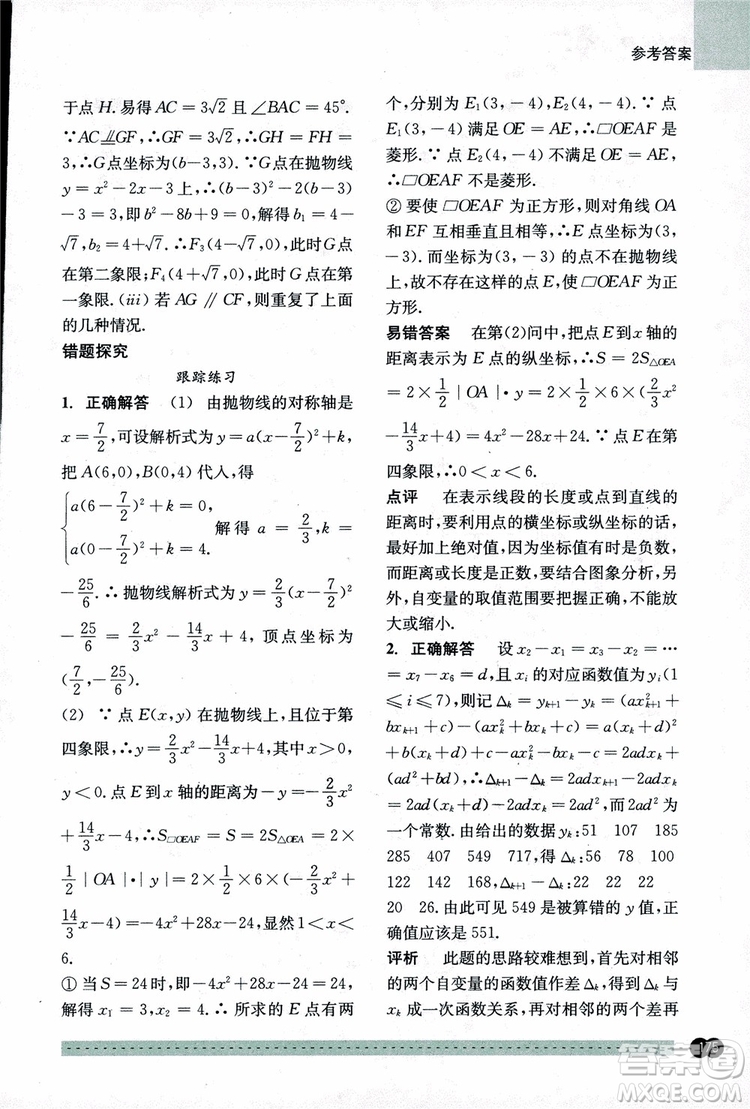 参考答案
于点 H. 易得 AC = 3√2 且 ∠BAC = 45°.
∵AC ⫽ GF, ∴GF = 3√2, ∴GH = FH =
3, ∴G 点坐标为(b−3, 3). ∵G 点在抛物线
y = x² − 2x − 3 上, ∴(b−3)² − 2(b−3)
− 3 = 3, 即 b² − 8b + 9 = 0, 解得 b₁ = 4 −
√7, b₂ = 4 + √7. ∴F₃(4−√7, 0), 此时 G 点
在第二象限; F₄(4+√7, 0), 此时 G 点在第
一象限. (iii) 若 AG ∥ CF, 则重复了上面
的几种情况.
错题探究
跟踪练习
1. 正确解答 (1) 由抛物线的对称轴是
x = 7/2, 可设解析式为 y = a(x − 7/2)² + k,
把 A(6,0), B(0,4) 代入, 得
{ a(6 − 7/2)² + k = 0,
a(0 − 7/2)² + k = 4.
解得 a = 2/3, k =
− 25/6. ∴ 抛物线解析式为 y = 2/3(x − 7/2)²
− 25/6 = 2/3x² − 14/3x + 4, 顶点坐标为
(7/2, − 25/6).
(2) ∵ 点 E(x, y) 在抛物线上, 且位于第
四象限, ∴ y = 2/3x² − 14/3x + 4, 其中
y < 0. 点 E 到 x 轴的距离为 − y = − 2/3x²
+ 14/3x − 4, ∴S▱OEAF = S = 2S△OEA = 2 ×
1/2 | OA | · | y | = 2 × 1/2 × 6 × (− 2/3x² +
14/3x − 4) = − 4x² + 28x − 24, 显然 1 < x <
6.
① 当 S = 24 时, 即 − 4x² + 28x − 24 = 24,
解得 x₁ = 3, x₂ = 4. ∴ 所求的 E 点有两
个, 分别为 E₁(3, −4), E₂(4, −4). ∵ 点
E₁(3, −4) 满足 OE = AE, ∴▱OEAF 是
菱形. ∵ 点 E₂(4, −4) 不满足 OE = AE,
∴▱OEAF 不是菱形.
② 要使 ▱OEAF 为正方形, 则对角线 OA
和 EF 互相垂直且相等, ∴E 点坐标为 (3,
−3). 而坐标为 (3, −3) 的点不在抛物线
上, 故不存在这样的点 E, 使 ▱OEAF 为正
方形.
易错答案 在第(2)问中, 把点 E 到 x 轴的
距离表示为 E 点的纵坐标, ∴S = 2S△OEA
= 2 × 1/2 | OA | · y = 2 × 1/2 × 6 × (2/3x² −
14/3x + 4) = 4x² − 28x + 24. ∵ 点 E 在第
四象限, ∴0 < x < 6.
点评 在表示线段的长度或点到直线的
距离时, 要利用点的横坐标或纵坐标的话,
最好加上绝对值, 因为坐标值有时是负数,
而距离或长度是正数, 要结合图象分析, 另
外, 自变量的取值范围要把握正确, 不能放
大或缩小.
2. 正确解答 设 x₂ − x₁ = x₃ − x₂ = ⋯
= x₇ − x₆ = d, 且 xᵢ 的对应函数值为 yᵢ(1
≤ i ≤ 7), 则记 Δₖ = yₖ₊₁ − yₖ = (ax²ₖ₊₁ +
bxₖ₊₁ + c) − (ax²ₖ + bxₖ + c) = a(xₖ + d)²
+ b(xₖ + d) + c − ax²ₖ − bxₖ − c = 2adxₖ +
(ad² + bd), ∴ Δₖ₊₁ − Δₖ = 2adxₖ₊₁ − 2adxₖ
= 2ad(xₖ + d) − 2adxₖ = 2ad². ∴2ad² 为
一个常数. 由给出的数据 yₖ: 51 107 185
285 407 549 717, 得 Δₖ: 56 78 100
122 142 168, Δₖ₊₁ − Δₖ: 22 22 22
20 26. 由此可见 549 是被算错的 y 值, 正
确值应该是 551.
评析 此题的思路较难想到, 首先对相邻
的两个自变量的函数值作差 Δₖ 得到 Δₖ 与
xₖ 成一次函数关系, 再对相邻的两个差再
答案圈
MXQE.COM